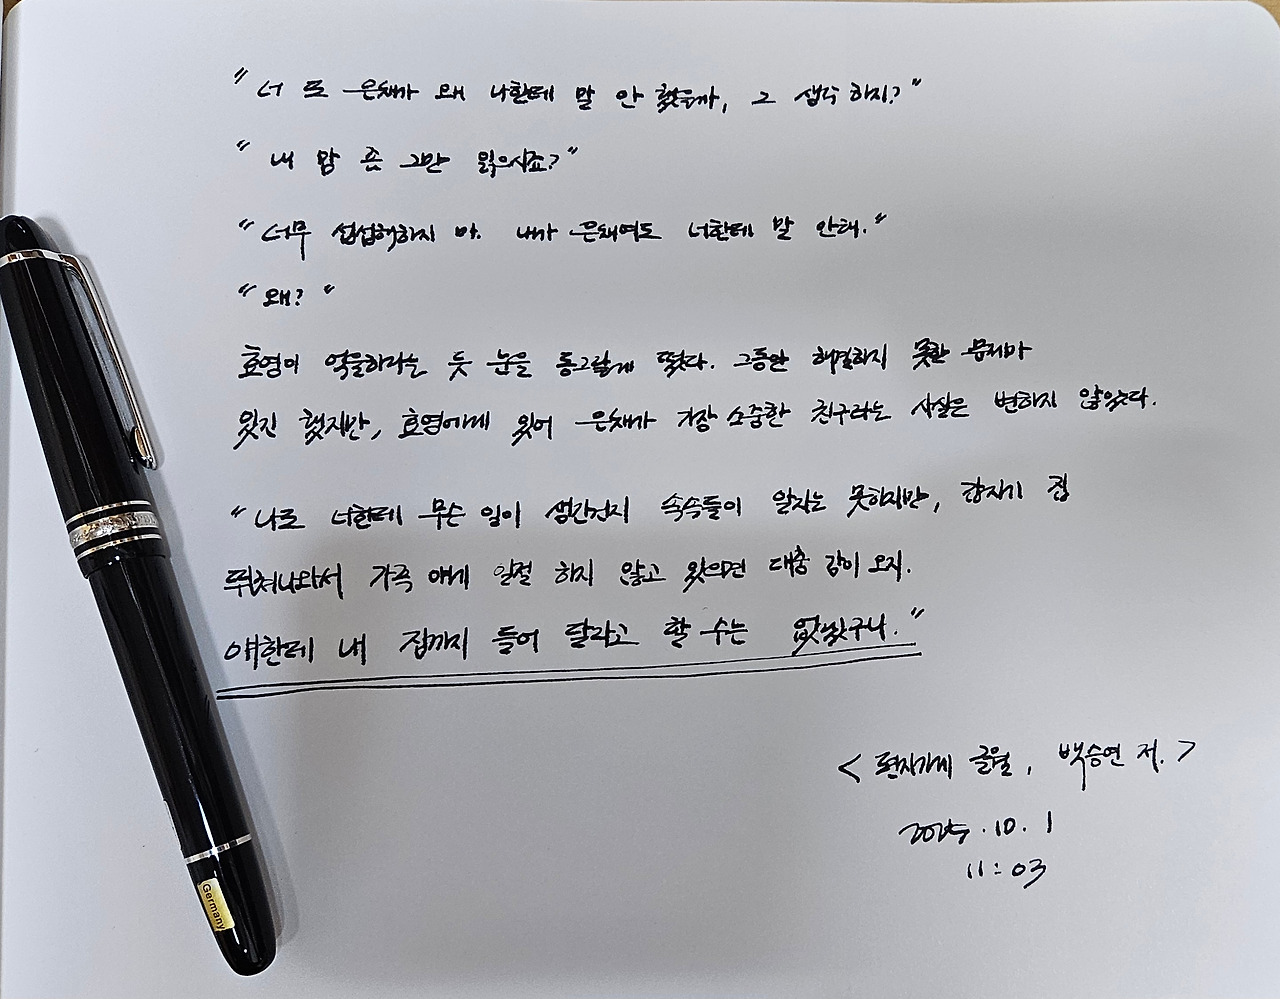 "너 또 은채가 왜 나한테 말 안 했을까, 그 생각 하지?"
"내 맘 좀 그만 읽으시죠?"
"너무 섭섭해하지 마. 내가 은채여도 너한테 말 안해."
"왜?"
효영이 억울하다는 듯 눈을 동그랗게 떴다. 그동안 해결하지 못한 문제가
있긴 했지만, 효영에게 있어 은채가 가장 소중한 친구라는 사실은 변하지 않았다.
"나도 너한테 무슨 일이 생긴건지 속속들이 알지는 못하지만, 갑자기 집
뛰쳐나와서 가족 얘기 일절 하지 않고 있으면 대충 감이 오지.
얘한테 내 짐까지 들어 달라고 할 수는 없겠구나."
<편지가게 글월, 백승연 저.>
2025.10.1
11:03
Germany